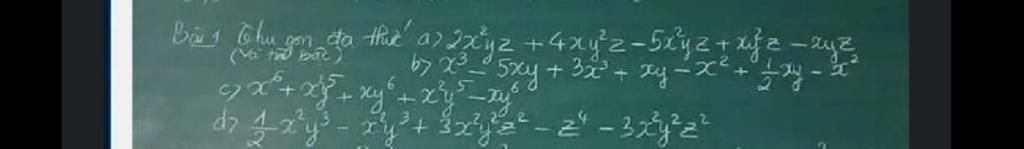 Bài 1 Thu gọn đa thức a) 2x²yz + 4xy²z - 5x²yz + xy²z - xyz
(và tìm bậc) b) x³ - 5xy + 3x³ + xy - x² + ½xy - x²
c) x⁶ + x²y⁵ + xy⁶ + x²y⁵ - xy⁶
d) ½x²y³ - x²y³ + 3x²y²z² - z⁴ - 3x²y²z²